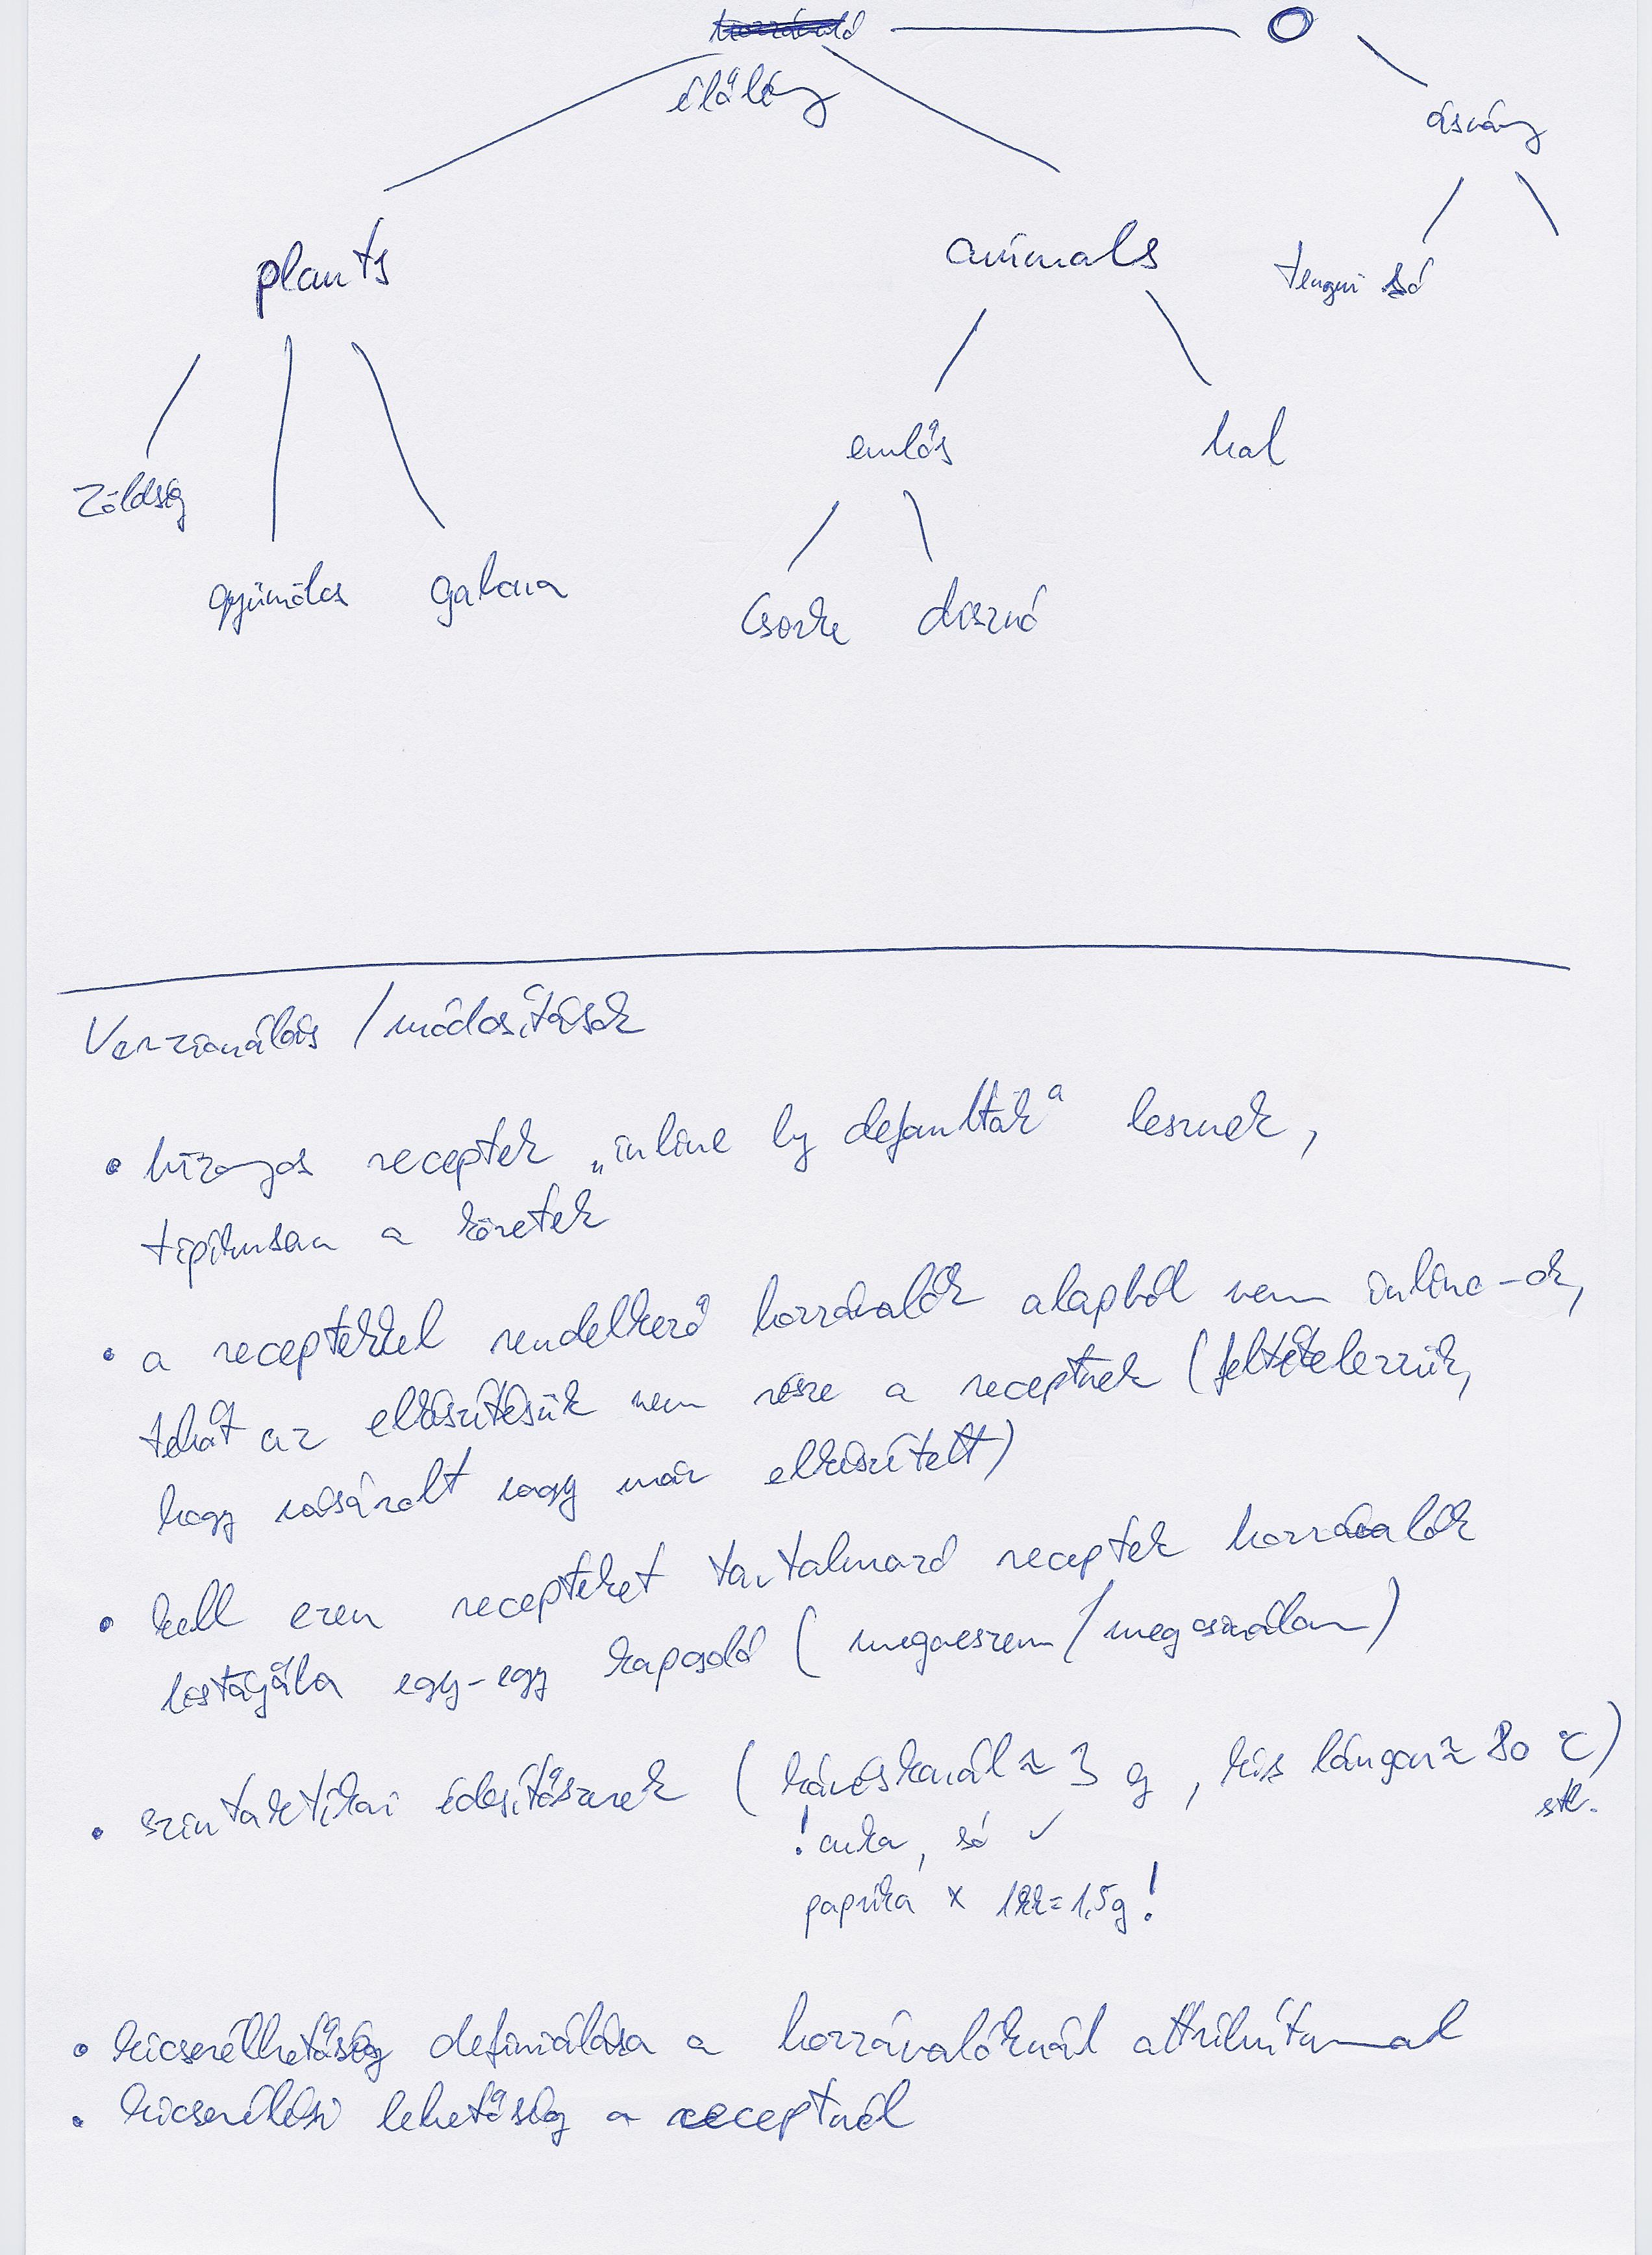 hozzávaló O
élőlény
ásvány
plants animals tengeri só
emlős hal
zöldség
gyümölcs gabona csirke disznó
Verzionálás / módosítások
• bizonyos receptek „inline by defaultak" lesznek,
tipikusan a köretek
• a receptekkel rendelkező hozzávalók alapból nem inline-ok,
tehát az elkészítésük nem része a receptnek (feltételezzük,
hogy vásárolt vagy már elkészített)
• kell ezen recepteket tartalmazó receptek hozzávalók
listájába egy-egy kapcsoló (megveszem / megcsinálom)
• szintaktikai édesítőszerek (kávéskanál ≈ 3 g, kis lángon ≈ 80 °C)
stb.
! cukor, só ✓
paprika x 1kk = 1,5g !
• kicserélhetőség definiálása a hozzávalóknál attribútummal
• kicserélési lehetőség a receptnél